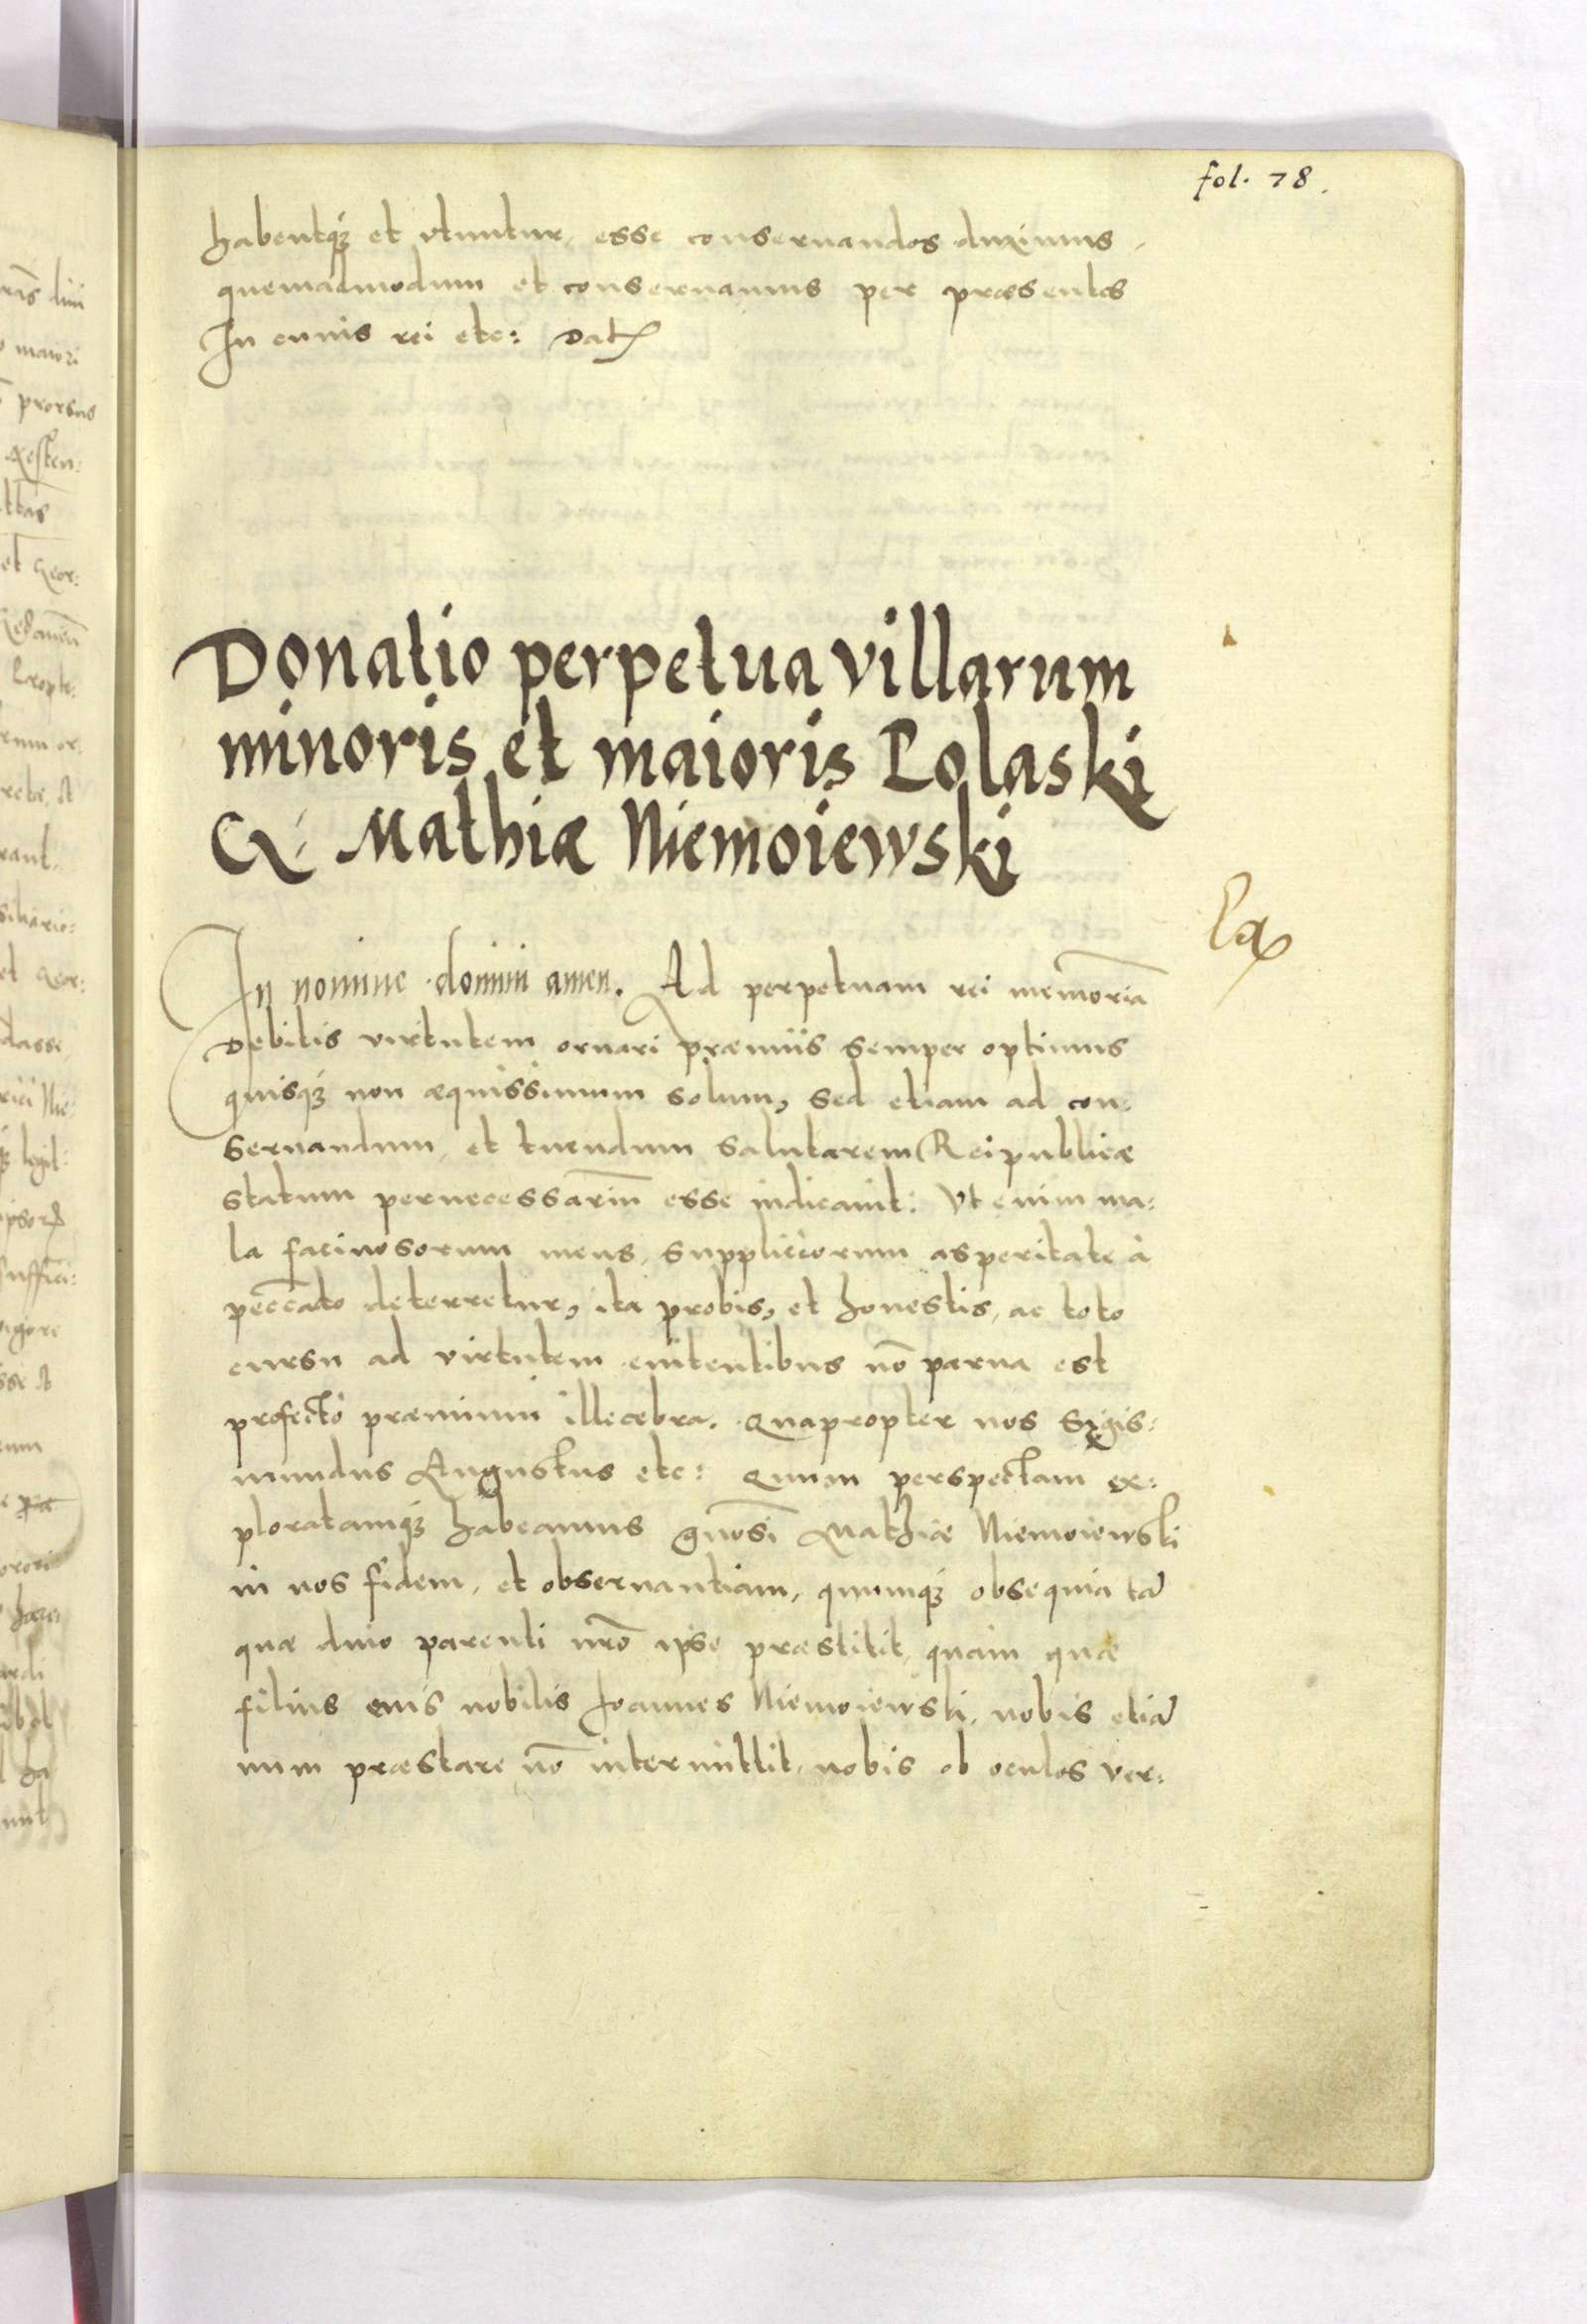 fol. 78.
habentq3 et vtuntur, esse conseruandos duximus,
quemadmodum et conseruamus per præsentes
In cuius rei etc: Dat
Donatio perpetua villarum
minoris et maioris Polaski
G: Mathiæ Niemoiewski
In nomine domini amen. Ad perpetuam rei memoriā
Debitis virtutem ornari præmiis semper optimus
quisq3 non æquissimum solum, sed etiam ad con:
seruandum, et tuendum salutarem Reipublicæ
statum pernecessariū esse iudicauit: Vt enim ma:
la facinosorum mens, suppliciorum asperitate à
peccato deterretur, ita probis, et honestis, ac toto
cursu ad virtutem enitentibus nō parua est
profectò præmium illecebra. Quapropter nos Sigis:
mundus Augustus etc: Quum perspectam ex:
ploratamq3 habeamus gnosi Mathiæ Niemoiewski
in nos fidem, et obseruantiam, quumq3 obsequia tā
quæ diuo parenti nrō ipse præstitit, quàm quæ
filius eius nobilis Joannes Niemoiewski, nobis etiā
num præstare nō intermittit, nobis ob oculos ver: